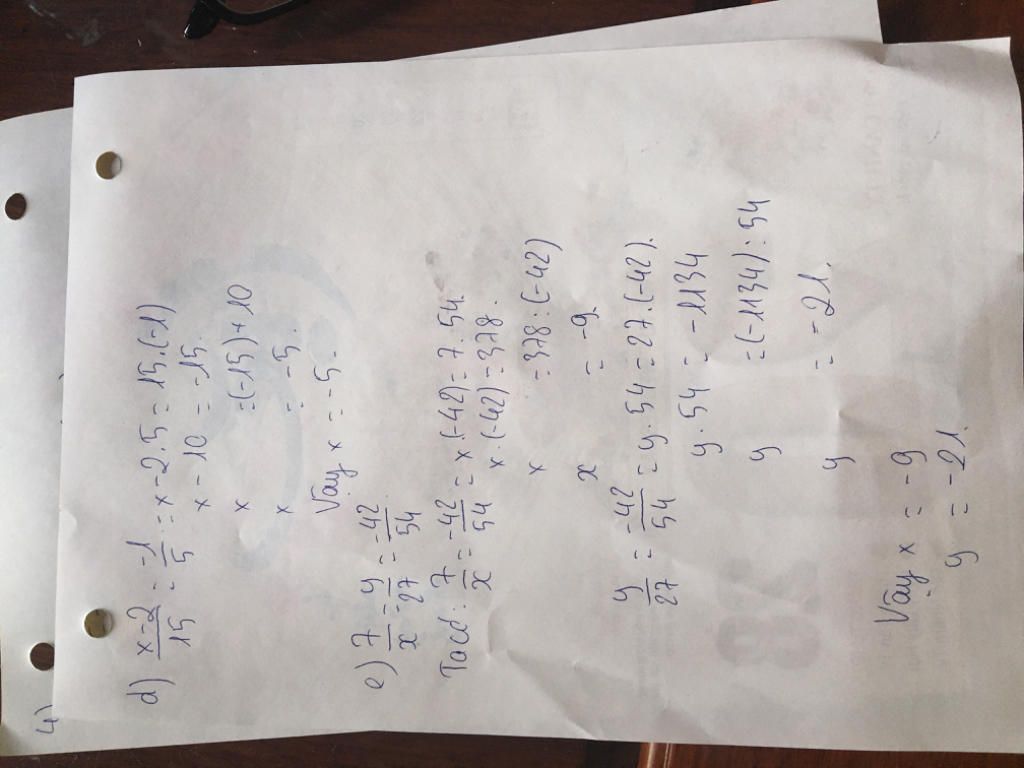 4)
d) x-2/15 = -1/5 = x-2.5 = 15.(-1)
x-10 = -15.
x = (-15)+10
x = -5.
Vậy x = -5.
e) 7/x = y/27 = -42/54
Ta có: 7/x = -42/54 = x.(-42) = 7.54.
x.(-42) = 378.
x = 378:(-42)
x = -9.
y/27 = -42/54 = y.54 = 27.(-42).
y.54 = -1134
y = (-1134):54
y = -21.
Vậy x = -9
y = -21.